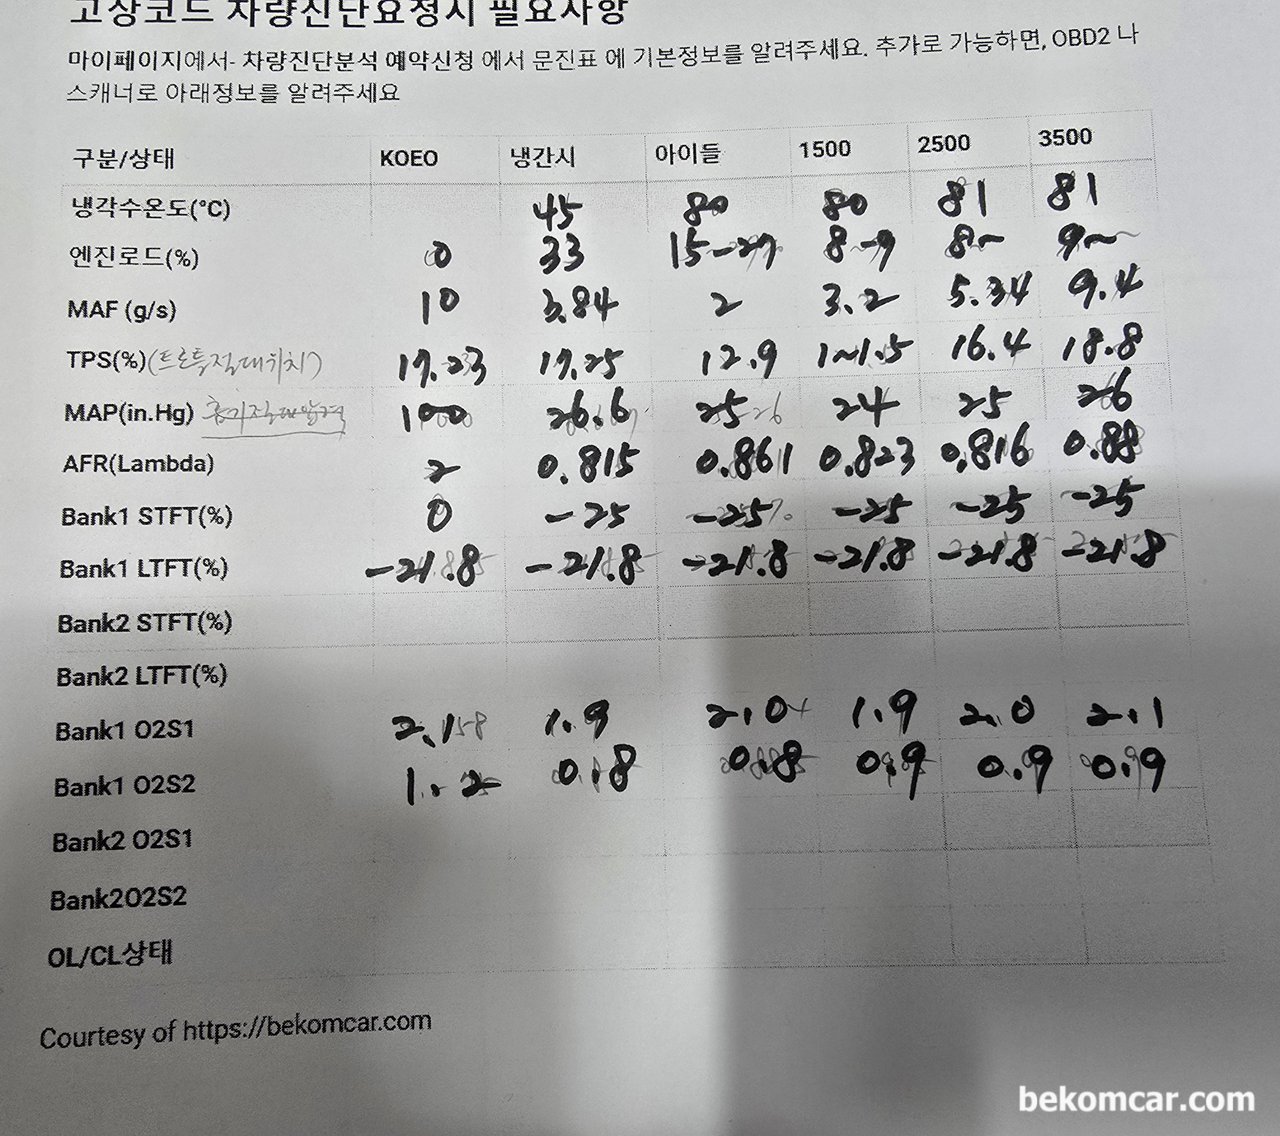 고장코드 차량진단요청시 필요사항
마이페이지에서- 차량진단분석 예약신청 에서 문진표 에 기본정보를 알려주세요. 추가로 가능하면, OBD2 나
스캐너로 아래정보를 알려주세요
구분/상태 KOEO 냉간시 아이들 1500 2500 3500
냉각수온도(°C) 45 80 80 81 81
엔진로드(%) 0 33 15-27 8-9 8~ 9~
MAF (g/s) 10 3.84 2 3.2 5.34 9.4
TPS(%) (트로틀절대위치) 17.23 17.25 12.9 1~1.5 16.4 18.8
MAP(in.Hg) 흡기절대압력 100 26.6 25-26 24 25 26
AFR(Lambda) 2 0.815 0.861 0.823 0.816 0.88
Bank1 STFT(%) 0 -25 -25% -25 -25 -25
Bank1 LTFT(%) -21.8 -21.8 -21.8 -21.8 -21.8 -21.8
Bank2 STFT(%)
Bank2 LTFT(%)
Bank1 O2S1 2.1 1.9 2.0 1.9 2.0 2.1
Bank1 O2S2 1.2 0.8 0.8 0.9 0.9 0.9
Bank2 O2S1
Bank2O2S2
OL/CL상태
Courtesy of https://bekomcar.com
bekomcar.com